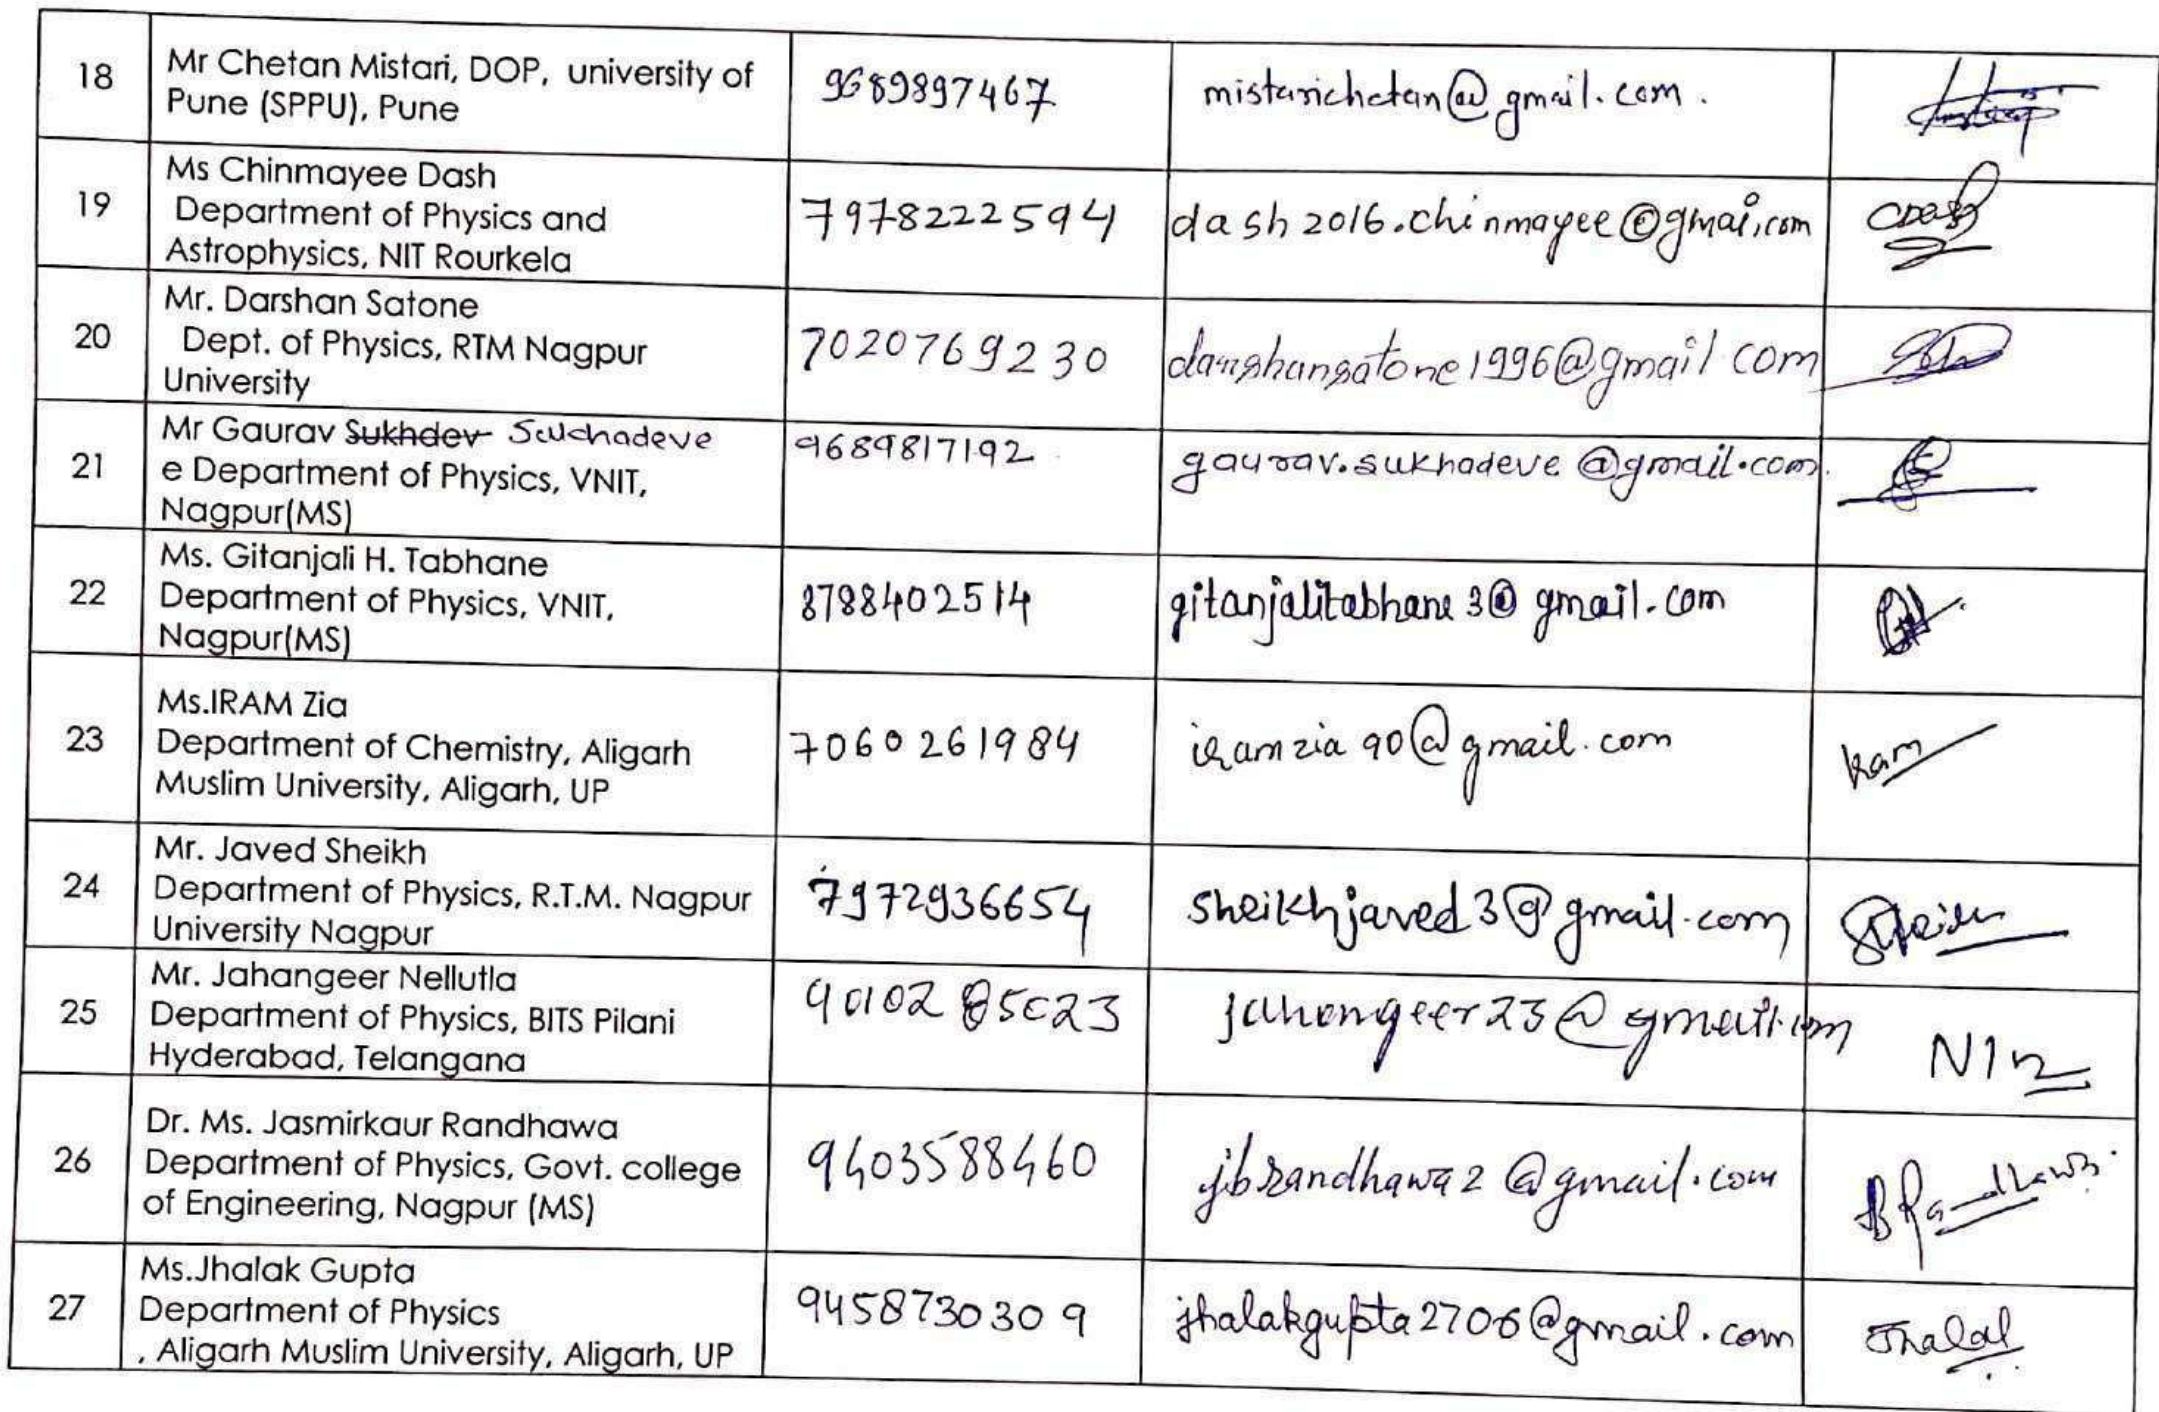 18
Mr Chetan Mistari, DOP, university of
Pune (SPPU), Pune
9689897467
mistarichetan@gmail.com.
19
Ms Chinmayee Dash
Department of Physics and
Astrophysics, NIT Rourkela
7978222594
dash2016.chinmayee@gmai.com
CDash
20
Mr. Darshan Satone
Dept. of Physics, RTM Nagpur
University
7020769230
darshansatone1996@gmail com
21
Mr Gaurav Sukhdev Sukhadeve
e Department of Physics, VNIT,
Nagpur(MS)
9689817192
gaurav.sukhadeve@gmail.com.
22
Ms. Gitanjali H. Tabhane
Department of Physics, VNIT,
Nagpur(MS)
8788402514
gitanjalitabhane3@gmail.com
23
Ms.IRAM Zia
Department of Chemistry, Aligarh
Muslim University, Aligarh, UP
7060261984
iramzia90@gmail.com
24
Mr. Javed Sheikh
Department of Physics, R.T.M. Nagpur
University Nagpur
7972936654
sheikhjaved3@gmail.com
25
Mr. Jahangeer Nellutla
Department of Physics, BITS Pilani
Hyderabad, Telangana
9010285023
jahangeer23@gmail.com
26
Dr. Ms. Jasmirkaur Randhawa
Department of Physics, Govt. college
of Engineering, Nagpur (MS)
9403588460
jbrandhawa2@gmail.com
BRandhawa
27
Ms.Jhalak Gupta
Department of Physics
, Aligarh Muslim University, Aligarh, UP
9458730309
jhalakgupta2706@gmail.com
Jhalak